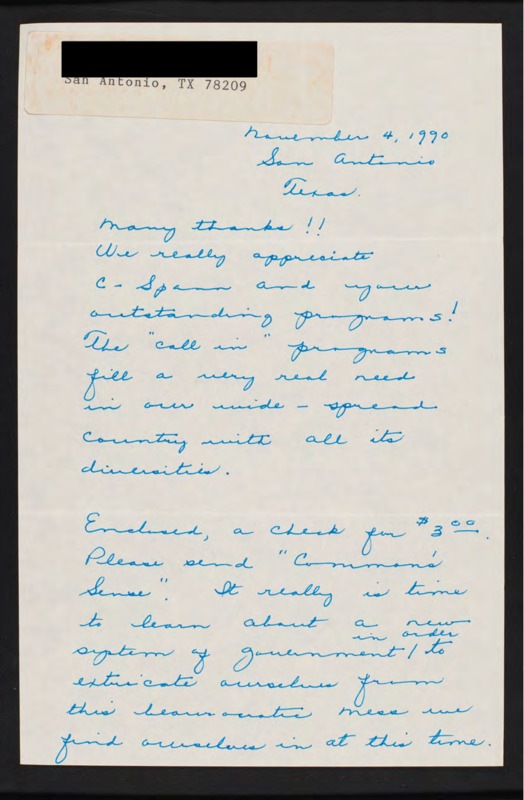 San Antonio, TX 78209
November 4, 1990
San Antonio
Texas.
Many thanks!!
We really appreciate
C-Spann and your
outstanding programs!
The "call in" programs
fill a very real need
in our wide-spread
country with all its
diversities.
Enclosed, a check for $3 00.
Please send "Common's
Sense". It really is time
to learn about a new
in order
system of government / to
extricate ourselves from
this beaurocratic mess we
find ourselves in at this time.